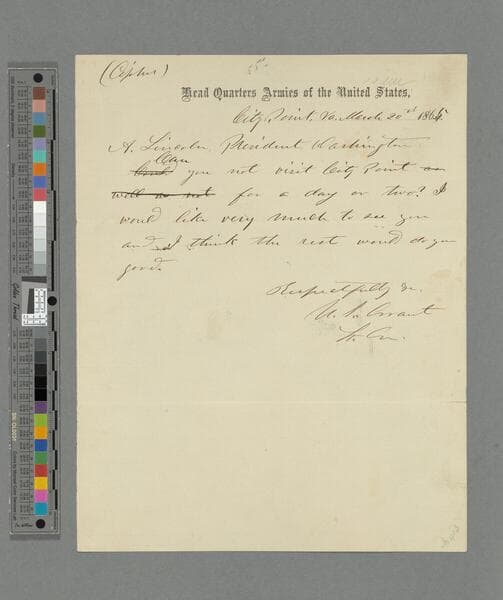 (Cipher)
Head Quarters Armies of the United States,
City Point, Va. March 20th 1865
A. Lincoln, President Washington
Can
you not visit City Point
for a day or two? I
would like very much to see you
and I think the rest would do you
good.
Respectfully &c.
U. S. Grant
Lt. Gn.